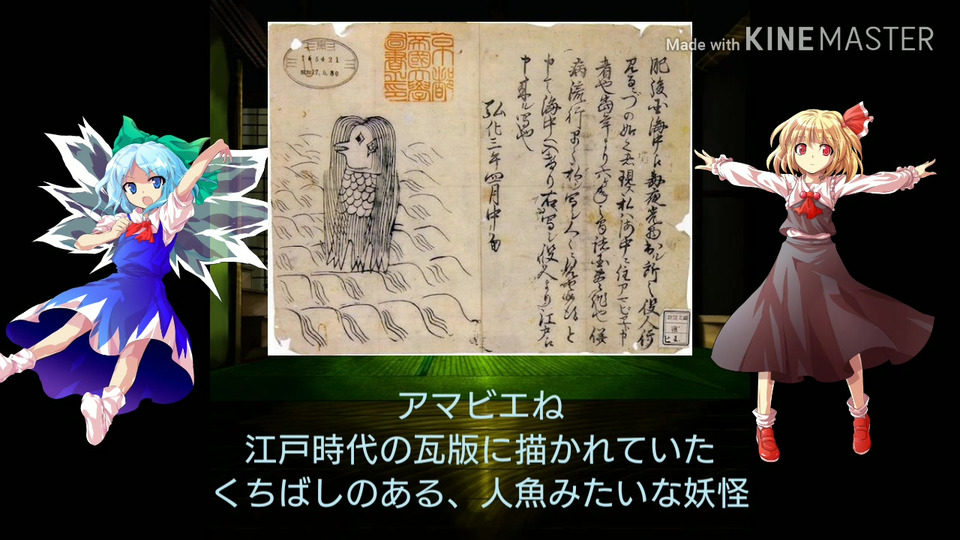 Made with KINEMASTER
京都
帝國大學
圖書之印
肥後国海中え毎夜光物出ル所之役人行
見るニづの如く者現ス私ハ海中ニ住アマビヱト申
者也当年より六ヶ年之間諸国豊作也併
病流行早々私ヲ写シ人々ニ見せ候得と
申て海中へ入けり右写シ役人より江戸え
申来ル写也
弘化三年四月中旬
アマビエね
江戸時代の瓦版に描かれていた
くちばしのある、人魚みたいな妖怪